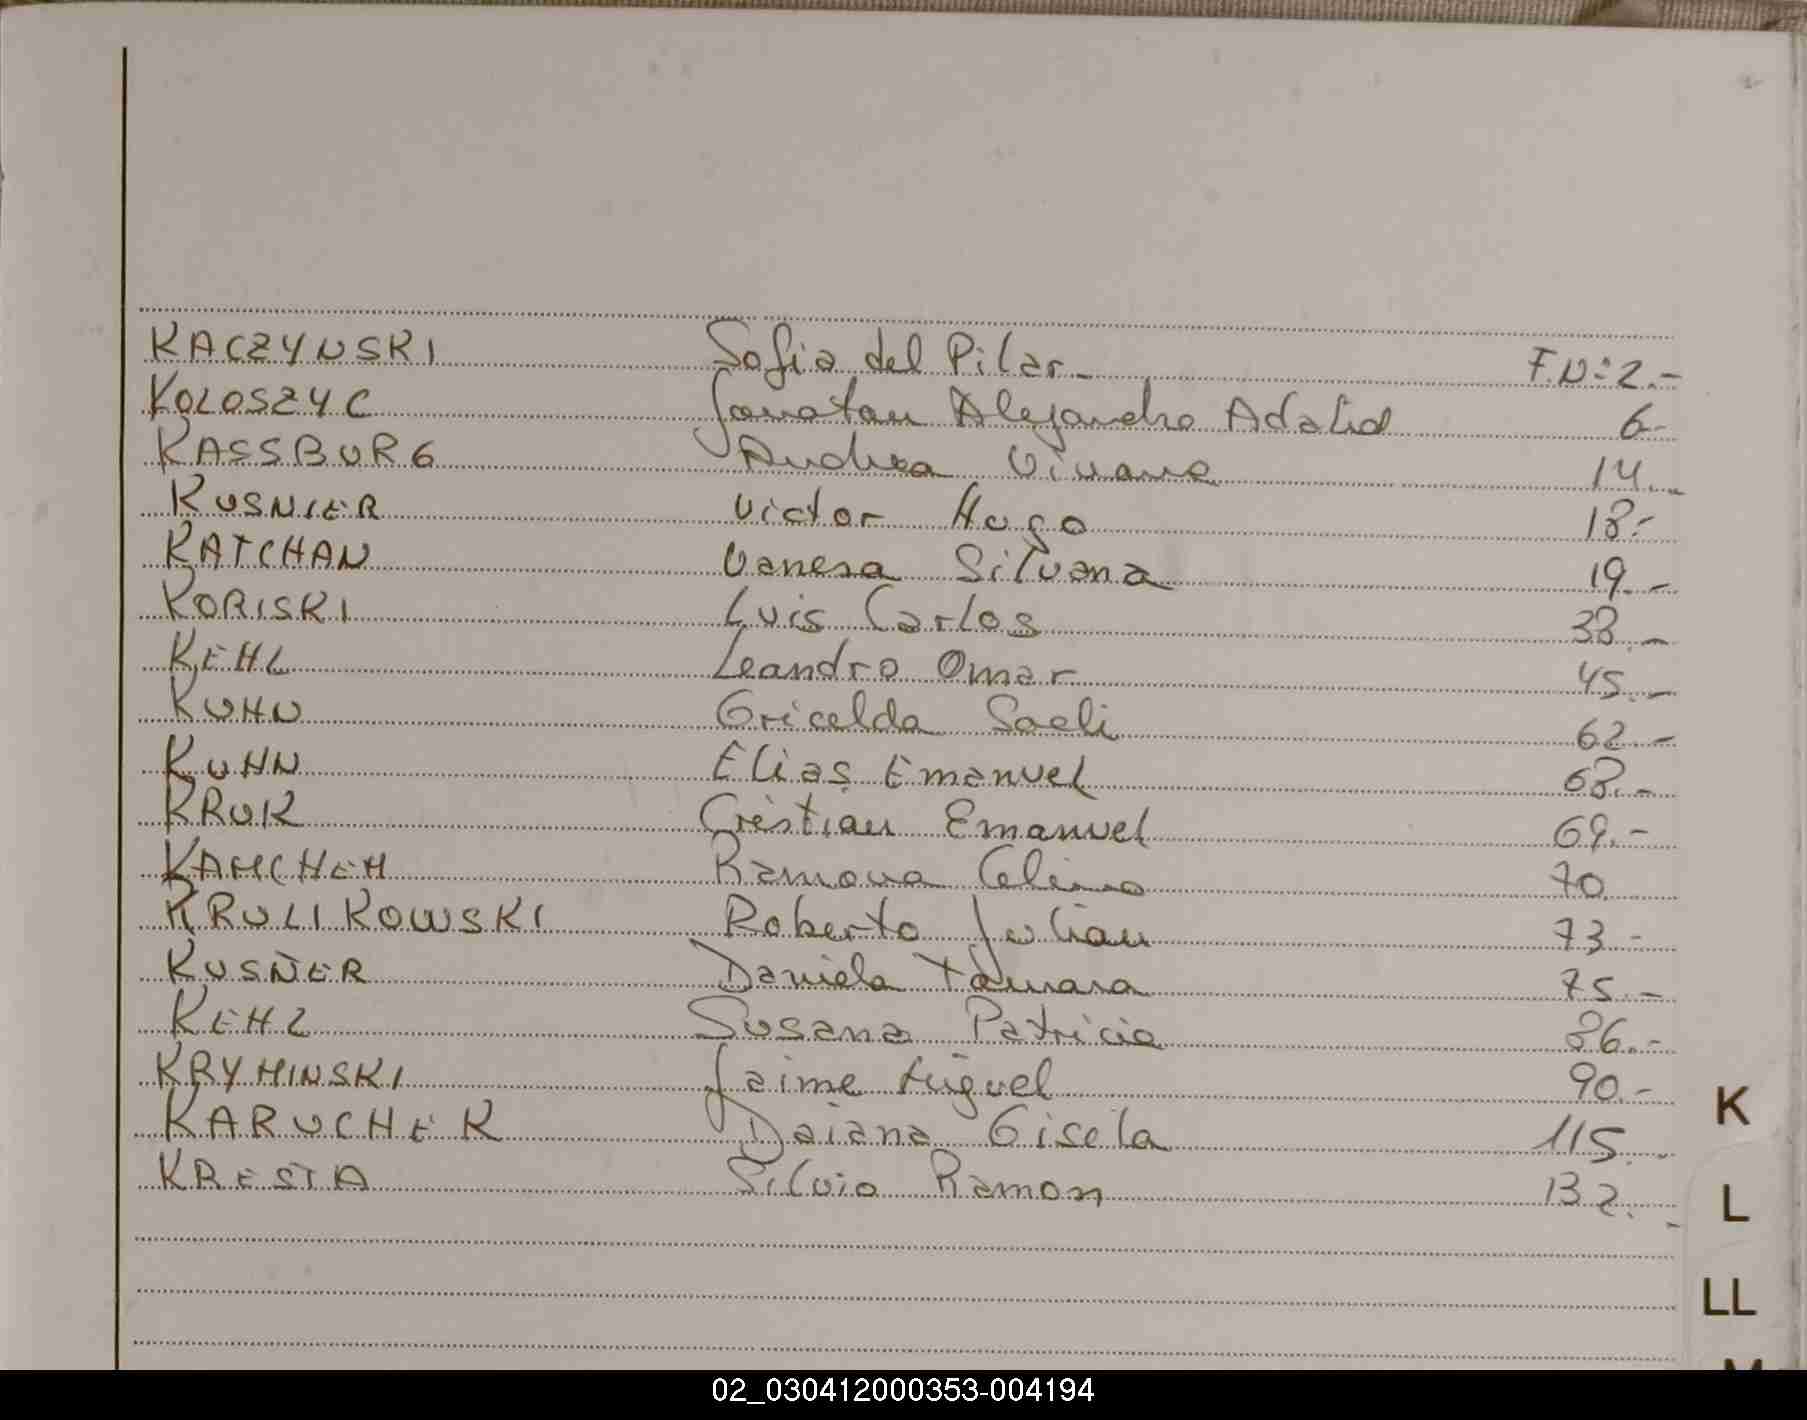 KACZYNSKI Sofia del Pilar F.Nº 2.-
KOLOSZYC Jonatan Alejandro Adalid 6-
KASSBURG Andrea Viviana 14.-
KUSNIER Victor Hugo 18.-
KATCHAN Vanesa Silvana 19.-
KORISKI Luis Carlos 38.-
KEHL Leandro Omar 45.-
KUHN Gricelda Soeli 62.-
KUHN Elias Emanuel 68.-
KRUK Cristian Emanuel 69.-
KAMCHEM Ramona Celina 70.
KRULIKOWSKI Roberto Julian 73-
KUSÑER Daniela Tamara 75.-
KEHL Susana Patricia 86.-
KRYMINSKI Jaime Miguel 90.-
KARUCHEK Daiana Gisela 115.-
KRESTA Silvio Ramon 132.-
K
L
LL
02_030412000353-004194